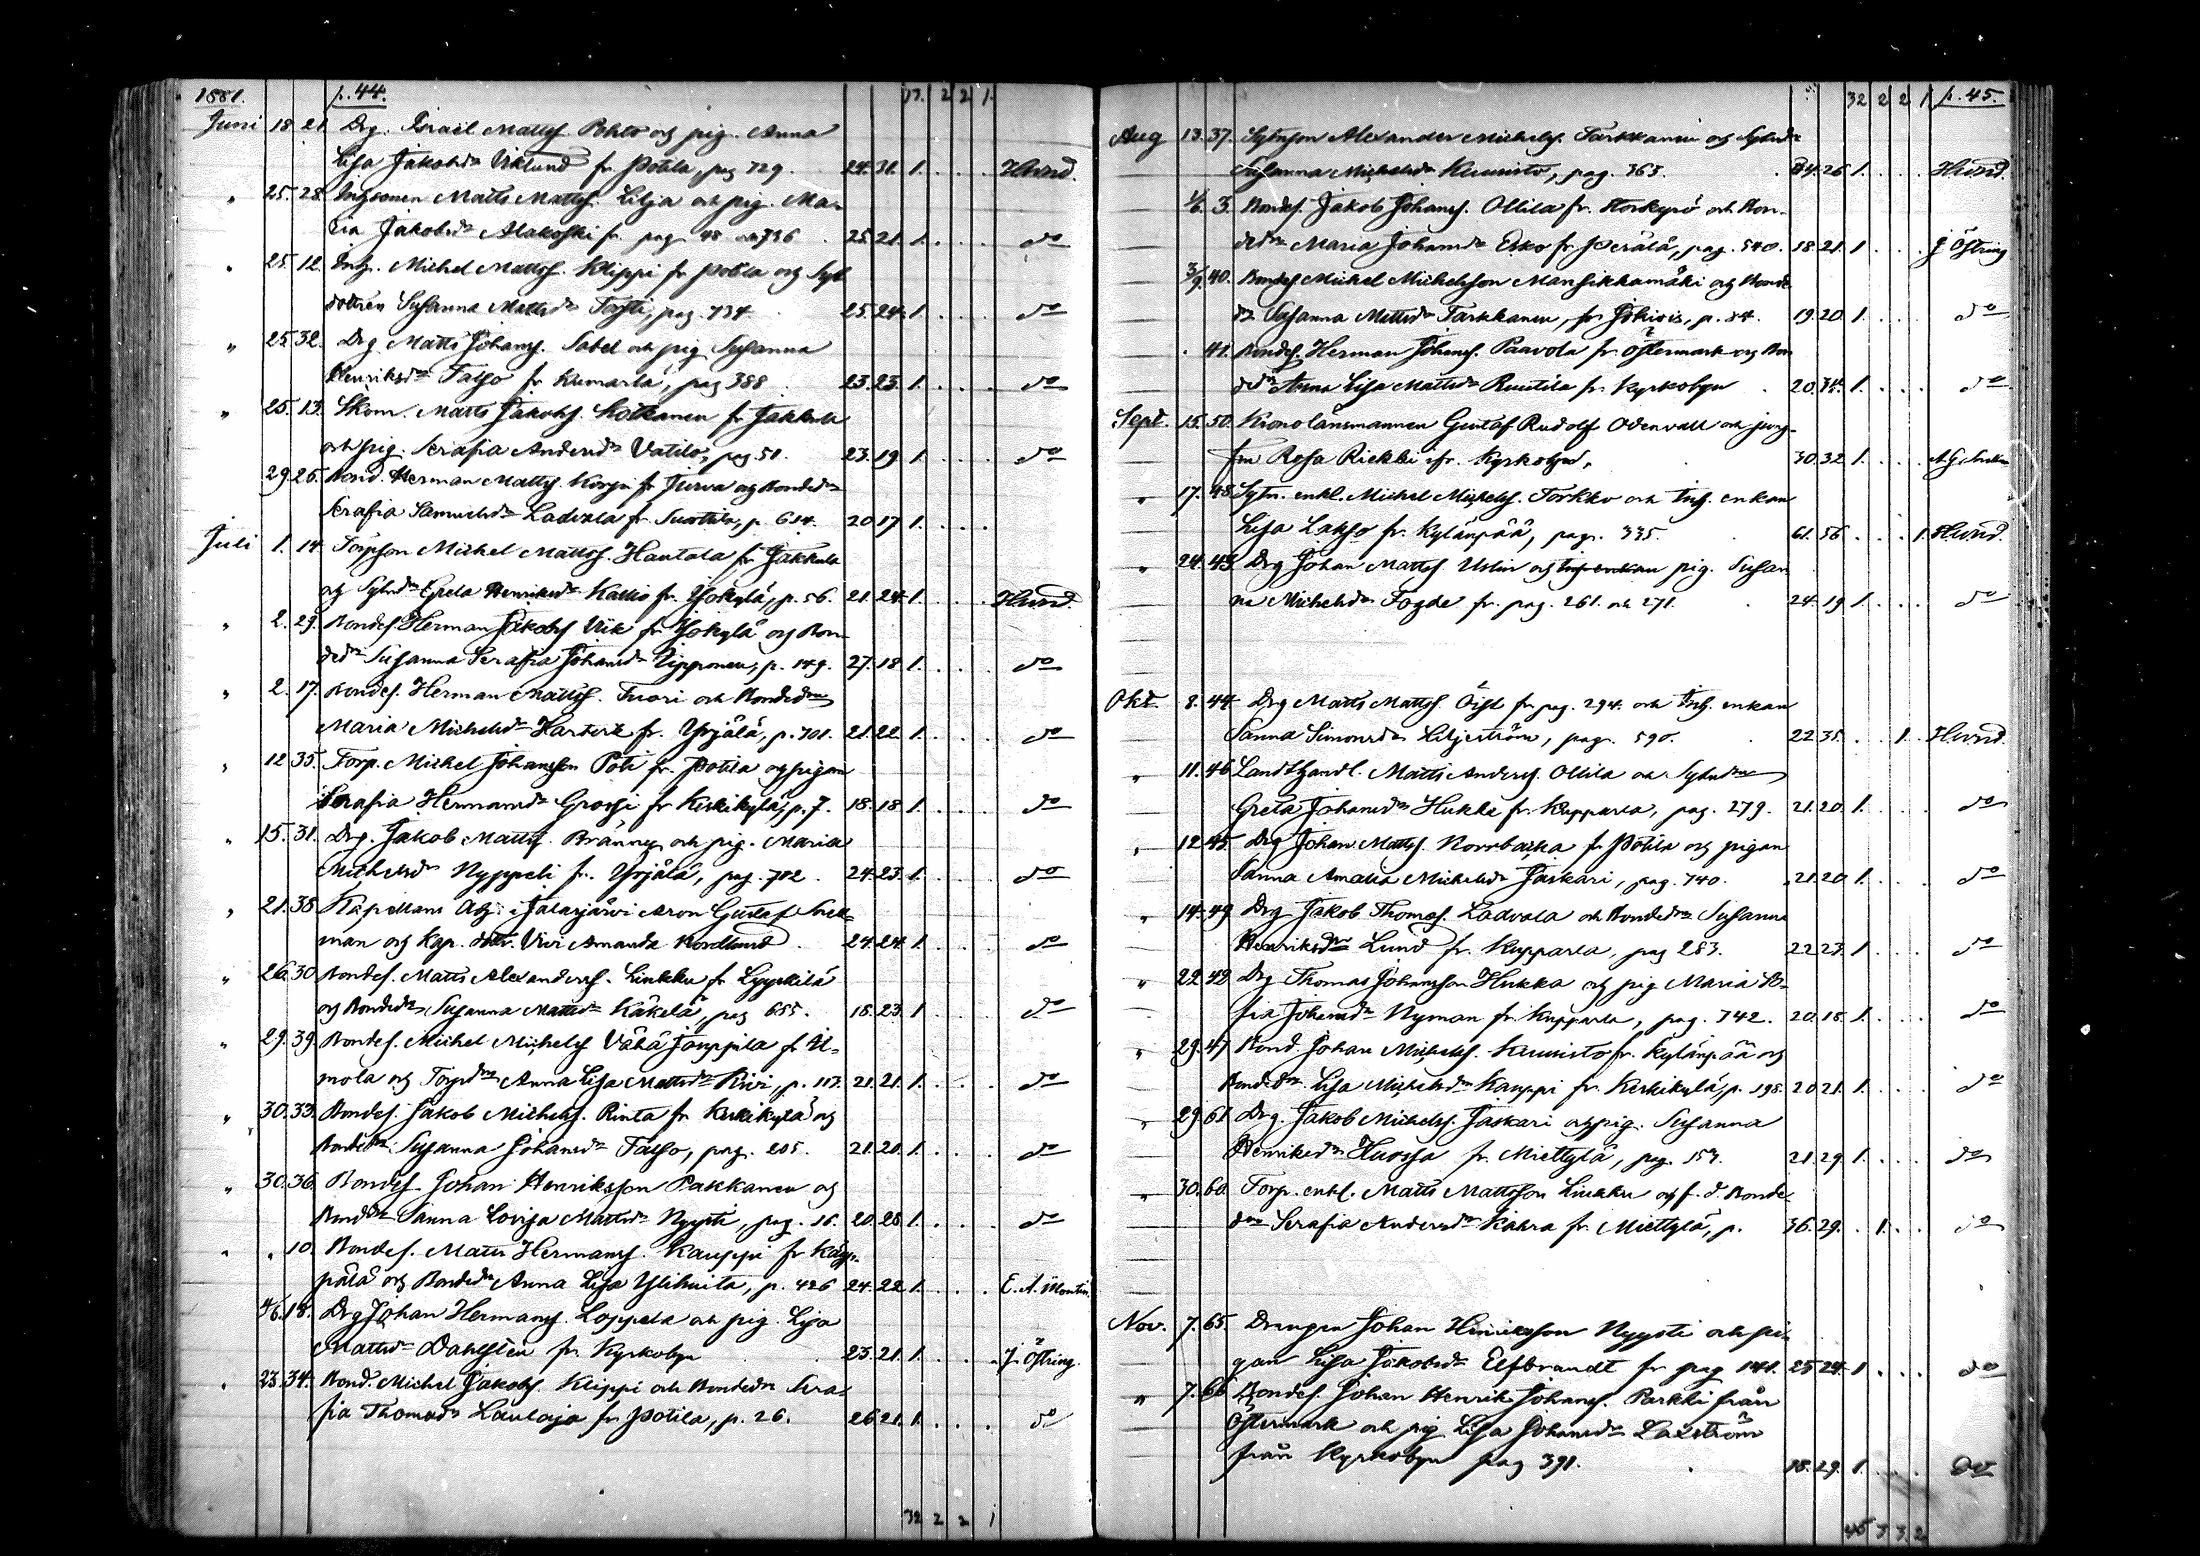 1881. p. 44. 17. 2 2 1.
Juni 18. 21. Drg. Israel Matts. Pohto och pig. Anna
Lisa Jakobsdr Viklund fr. Potila, pag 729. 24. 31. 1. . . . Hlund.
" 25. 28. Inhysonen Matts Mattss. Lilja och pig. Ma-
ria Jakobsdr Alakoski fr. pag. 48 och 736. 25. 21. 1. . . . do
" 25. 12. Inh. Michel Mattss. Klippi fr Potila och Syt.
dottren Susanna Mattsdr pag. 734. 25. 24. 1. . . . do
" 25. 32. Drg Matts Johanss. Sabel och pig Susanna
Henriksdr Talso fr. Kumarla, pag 388. 23. 23. 1. . . . do
" 25. 13. Matts Jakobs. fr Jakkula
och pig. Serafia Andersdr Vatilo, pag. 51. 23. 19 1. . . . do
29. 26. Bond. Herman Mattss. fr. Jurva och Bondedr
Serafia Samuelsdr Ladvala fr. p. 614. 20. 17 1. . . .
Juli 1. 14. Torpson Michel Mattss. Hautala fr Jakkula
och Sytndr Greta Henriksdr Kallio fr. Yokylä, p. 56. 21. 24. 1. . . . Hlund.
" 2. 29. Bondes. Herman Jakobss Vik fr Yokylä och Bon-
dedr Susanna Serafia Johansdr p. 149. 27. 18 1. . . . do
" 2. 17. Bondes. Herman Mattss. Tuori och Bondedr
Maria Michelsdr fr. Yrjälä, p. 701. 21. 22 1. . . . do
" 12. 35. Torp. Michel Johansson Poti fr. Potila och pigan
Serafia Hermansdr Grossi fr Keskikylä, p. 7. 18. 18 1. . . . do
" 15. 31. Drg. Jakob Mattss. Bränney och pig. Maria
Michelsdr Nyppeli fr. Yrjälä, pag. 702. 24. 23. 1. . . . do
" 21. 38. Kapellans Adj. i Jalasjärvi Aron Gustaf Snell-
man och Kap. dotr. Vivi Amanda Nordlund. 24. 24. 1. . . . do
" 26. 30 Bondes. Matts Alexanderss. Liukku fr Lyyskilä
och Bondedr Susanna Mattsdr Käkelä, pag 685. 18. 23. 1 . . . do
" 29. 39. Bondes. Michel Michelss Vähä Jouppila fr U-
mola och Torpdr Anna Lisa Mattsdr Kivi, p. 117. 21. 21. 1. . . . do
" 30. 33. Bondes. Jakob Michelss. Rinta fr Keskikylä och
Bondedr Susanna Johansdr Talso, pag. 205. 21. 20. 1. . . . do
" 30. 36. Bondes. Johan Henriksson Pakkanen och
Bonddr Sanna Lovisa Mattsdr Nyysti, pag. 16. 20. 28 1. . . . do
" " 10. Bondes. Matts Hermanss. Kauppi fr Käp-
pälä och Bondedr Anna Lisa Ylihuita, p. 426 24. 22 1. . . . E. A. Montin.
4/6. 18. Drg Johan Hermanss. Loppela och pig. Lisa
Mattsdr Dahlsten fr. Kyrkobyn 23. 21. 1. . . . J. Östring.
" 23. 34. Bond. Michel Jakobss. Klippi och Bondedr Sera-
fia Thomasdr Laulaja fr Potila, p. 26. 26. 21. 1. . . . do
32 2 2 1
32 2 2 1 p. 45.
Aug 13. 37. Sytnson Alexander Michelss. Tarkkanen och Sytndr
Susanna Michelsdr Kuunisto, pag. 363. 24. 26 1. . . . Hlund.
1/6. 3. Bondes. Jakob Johanss. Ollila fr. Storkyrö och Bon-
dedr Maria Johansdr Esko fr Perälä, pag. 540. 18. 21. 1 . . . J Östring
3/9. 40. Bondes Michel Michelsson Mansikkamäki och Bonde-
dr Susanna Mattsdr Tarkkanen, fr Jokivis, p. 84. 19. 20 1. . . . do
. 41. Bondes. Herman Johanss. Paavola fr. Östermark och Bon
dedr Anna Lisa Mattsdr Ruistila fr. Kyrkobyn. 20. 34. 1. . . . do
Sept. 15. 50. Kronolänsmannen Gustaf Rudolf Odenvall och jung-
frn Rosa Rickki fr. Kyrkobyn, 30. 32 1. . . .
" 17. 48. Sytn. enkl. Michel Michelss. Torkko och Inh. enkan
Lisa Lakso fr. Kylänpää, pag. 335. 61. 56 . . . 1 Hlund.
" 24. 43. Drg Johan Mattss. Uslin och Inh enkan pig. Susan-
na Michelsdr Fogde fr. pag. 261. och 271. 24. 19 1. . . . do
Okt. 8. 44. Drg Matts Mattss. Öist fr. pag. 294. och Inh. enkan
Sanna Simonsdr Liljeström, pag. 590. 22. 35. . . 1. . Hlund.
" 11. 46 Landthandl. Matts Anderss. Ollila och Sytndr
Greta Johansdr Hukka fr. Kupparla, pag. 279. 21. 20. 1. . . . do
" 12. 45. Drg Johan Mattss. Norrbacka fr Potila och pigan
Sanna Amalia Michelsdr Jaskari, pag. 740. 21. 20 1. . . . do
" 14. 49. Drg Jakob Thomass. Ladvala och Bondedr Susanna
Henriksdr Lund fr. Kupparla, pag 283. 22. 23. 1. . . . do
" 22. 42 Drg Thomas Johansson Hukka och pig Maria So-
fia Johansdr Nyman fr. Kupparla, pag. 742. 20. 18. 1. . . . do
" 29. 47 Bond. Johan Michelss. Kuunisto fr. Kylänpää och
Bondedr Lisa Michelsdr Kauppi fr. Keskikylä, p. 198. 20 21. 1. . . . do
" 29. 61 Drg. Jakob Michelss. Jaskari och pig. Susanna
Henriksdr Huossa fr. Miettylä, pag. 153. 21. 29 1. . . . do
" 30. 60. Torp. enkl. Matts Mattsson Liukku och f. d. Bonde-
drn Serafia Andersdr Kahra fr. Miettylä, p. 36. 29. . 1. . . do
Nov. 7. 65. Drängen Johan Hinriksson Nyysti och pi-
gan Lisa Jakobsdr Elfbrandt fr pag 141. 25 24. 1 . . . do
" 7. 66 Bondes. Johan Henrik Johanss. Parkki från
Östermark och pig Lisa Johansdr Laxström
från Kyrkobyn pag 391. 18. 29. 1. . . . Do
45 3 3 2